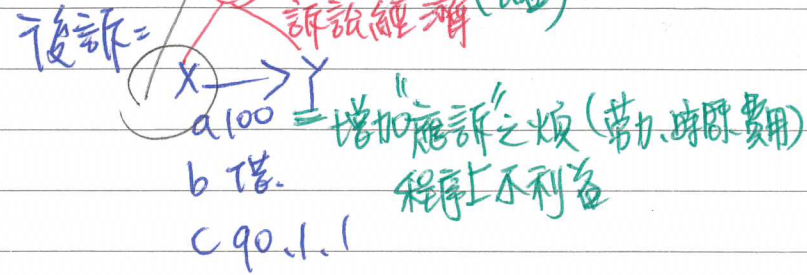 後訴= 訴訟經濟
X → Y
a 100 = 增加"應訴"之煩(勞力、時間、費用)
b 借. 程序上不利益
c 90.1.1